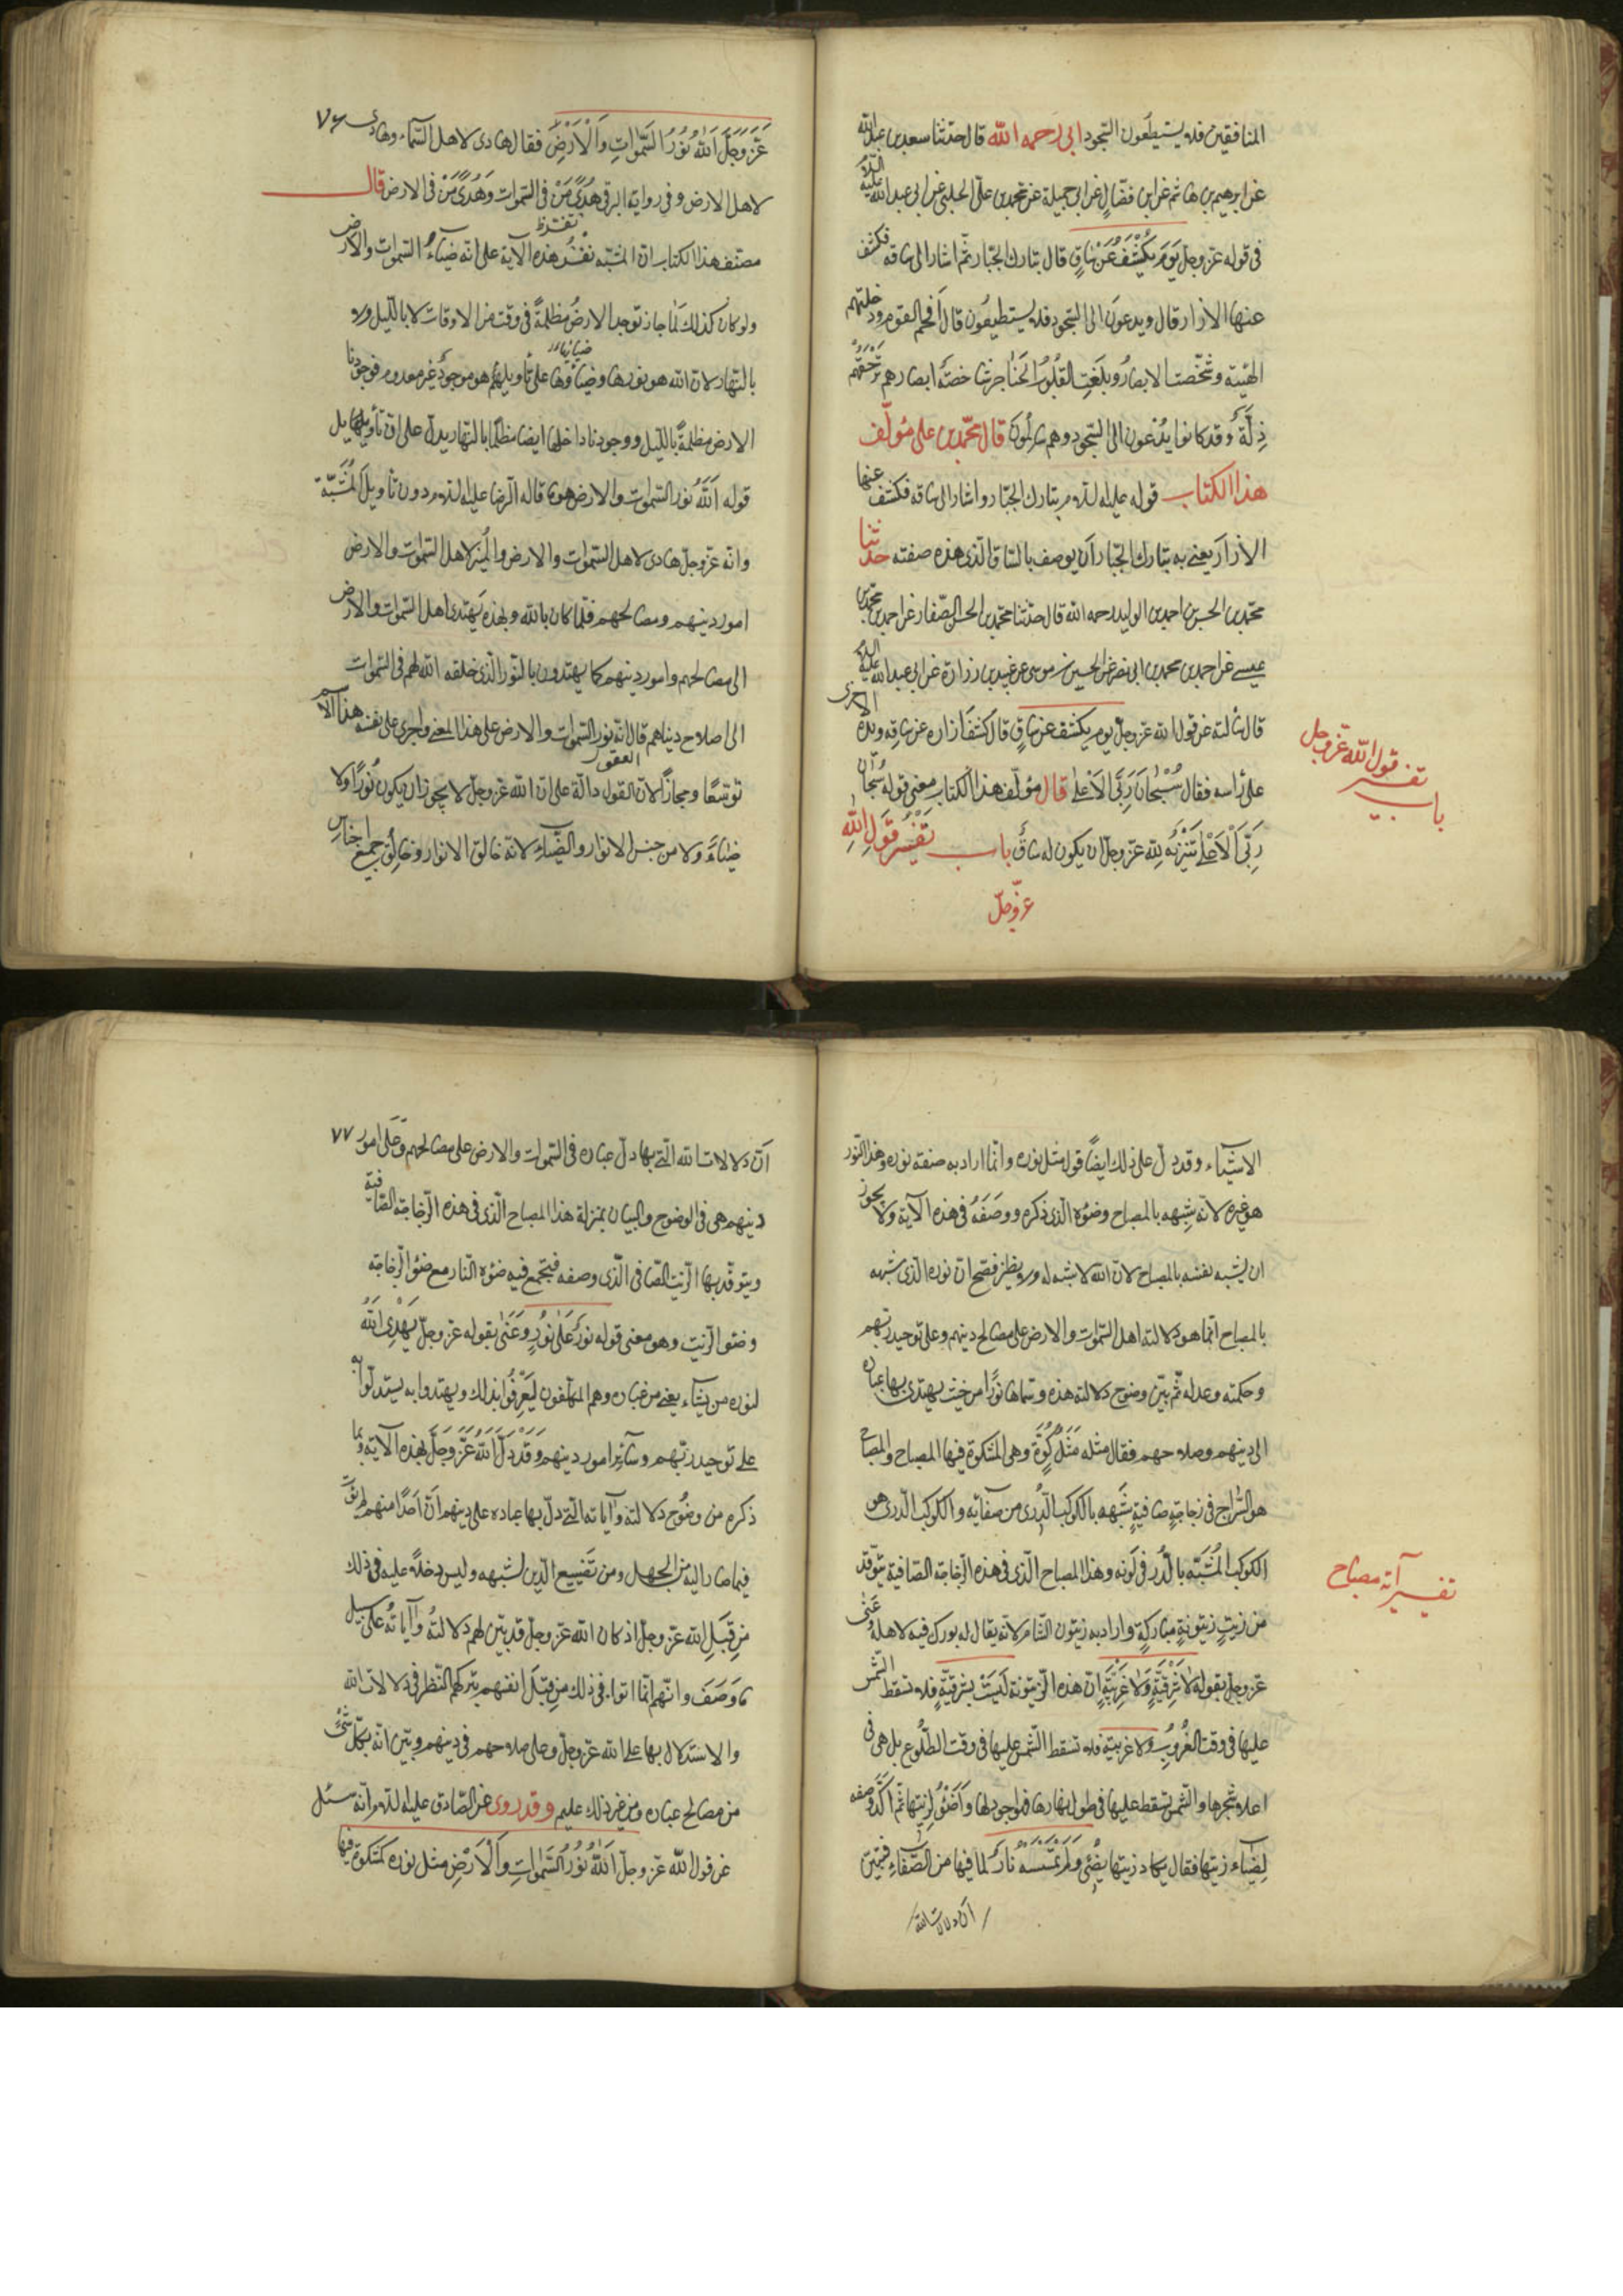 المنافقين فلا يستطيعون السجود ابى رحمه الله قال حدثنا سعد بن عبد الله
عن ابرهيم بن هاشم عن ابن فضال عن ابى جميلة عن محمد بن على الحلبى عن ابى عبد الله عليه السلام
فى قوله عز وجل يَومَ يُكْشَفُ عَنْ سَاقٍ قال تبارك الجبار ثم اشار الى ساقه فكشف
عنها الازار قال ويدعون الى السجود فلا يستطيعون قال أفحم القوم ودخلتهم
الهيبة وشخصت الابصار وبلغت القلوب الحناجر شاخصة ابصارهم ترهقهم
ذلة وقد كانوا يدعون الى السجود وهم سالمون قال محمد بن على مؤلف
هذا الكتاب قوله عليه السلام تبارك الجبار واشار الى ساقه فكشف عنها
الازار يعنى به تبارك الجبار أن يوصف بالساق الذى هذه صفته حدثنا
محمد بن الحسن بن احمد بن الوليد رحمه الله قال حدثنا محمد بن الحسن الصفار عن احمد بن محمد بن
عيسى عن احمد بن محمد بن ابى نصر عن الحسين بن موسى عن عبيد بن زرارة عن ابى عبد الله عليه السلام
قال سألته عن قول الله عز وجل يوم يكشف عن ساق قال كشف ازاره عن ساقه ويده الاخرى
على رأسه فقال سُبْحَانَ رَبِّىَ الاَعلى قال مؤلف هذا الكتاب معنى قوله سبحان
رَبِّىَ الاَعلى تنزيه لله عز وجل ان يكون له ساق باب تفسير قول الله
عز وجل
باب تفسير قول الله عز وجل
٧٦
عَزَّ وَجَلَّ اَللهُ نُوْرُ السَّمٰواتِ وَالْاَرْضِ فقال هادى لاهل السماء وهادى
لاهل الارض وفى رواية البرقى هُدًى مَنْ فى السموات وَهُدًى مَنْ فى الارض قال
مصنف هذا الكتاب ان المشبه تفسر هذه الآية على انه ضياء السموات والارض
ولو كان كذلك لما جاز توجد الارض مظلمة فى وقت من الاوقات لا بالليل ولا
بالنهار لان الله هو نورها وضياؤها على تأويلهم هو موجود غير معدوم فوجودنا
الارض مظلمة بالليل ووجودنا داخلها ايضا مظلما بالنهار يدل على ان تأويلها
قوله اَللهُ نور السموات والارض هو ما قاله الرضا عليه السلام دون تأويل المشبهة
وانه عز وجل هادى لاهل السموات والارض والمبين لاهل السموات والارض
امور دينهم ومصالحهم فلما كان بالله وبهذه يهتدى اهل السموات والارض
الى مصالحهم وامور دينهم كما يهتدون بالنور الذى خلقه الله لهم فى السموات
الى اصلاح دنياهم قال انه نور السموات والارض على هذا المعنى واجرى على نفسه هذا الاسم
توسعا ومجازا لان العقول دالة على ان الله عز وجل لا يجوز ان يكون نورا ولا
ضياء ولا من جنس الانوار والضياء لانه خالق الانوار وخالق جميع اجناس
الاشياء وقد دل على ذلك ايضا قوله مثل نوره وانما اراد به صفة نوره وهذا النور
هو غيره لانه شبهه بالمصباح وضوئه الذى ذكره ووصفه فى هذه الآية ولا يجوز
ان يشبه نفسه بالمصباح لان الله لا شبه له ولا نظير فصح ان نوره الذى شبهه
بالمصباح انما هو دلالته اهل السموات والارض على مصالح دينهم وعلى توحيد ربهم
وحكمته وعدله ثم بين وضوح دلالته هذه وسماها نورا من حيث يهتدى بها عباده
الى دينهم وصلاحهم فقال مثله مَثَلُ كُوَّةٍ وهى المشكوة فيها المصباح والمصباح
هو السراج فى زجاجة صافية شبهه بالكوكب الدرى من صفائه والكوكب الدرى هو
الكوكب المشبه بالدر فى لونه وهذا المصباح الذى فى هذه الزجاجة الصافية يتوقد
من زيت زيتونة مباركة واراد به زيتون الشام لانه يقال له بورك فيه لاهله وعنى
عز وجل بقوله لاَ شَرْقِيَّةٍ وَلاَ غَرْبِيَّةٍ ان هذه الزيتونة ليست بشرقية فلا تسقط الشمس
عليها فى وقت الغروب ولا غربية فلا تسقط الشمس عليها فى وقت الطلوع بل هى فى
اعلا شجرها والشمس تسقط عليها فى طول نهارها فهو اجود لها وَاَضْوَءُ لزيتها ثم اكد وصفه
لضياء زيتها فقال يكاد زيتها يضئ وَلَو لَمْ تَمْسَسْهُ نارٌ لما فيها من الصفاء فتبين
ان دلالات الله
تفسير آية مصباح
٧٧
ان دلالات الله التى بها دل عباده فى السموات والارض على مصالحهم وعلى امور
دينهم هى فى الوضوح والبيان بمنزلة هذا المصباح الذى فى هذه الزجاجة الصافية
ويتوقد بها الزيت الصافى الذى وصفه فيجتمع فيه ضوء النار مع ضوء الزجاجة
وضوء الزيت وهو معنى قوله نُورٌ عَلىٰ نُورٍ وعَنىٰ بقوله عز وجل يَهْدِى اللهُ
لنوره من يشاء يعنى من عباده وهم المكلفون ليعرفوا بذلك ويهتدوا به يستدلوا به
على توحيد ربهم وسائر امور دينهم وَقَدْ دَلَّ اللهُ عَزَّ وَجَلَّ بهذه الآية وبما
ذكره من وضوح دلالته وآياته التى دل بها عباده على دينهم ان احدا منهم لم يؤت
فيما صار اليه من الجهل ومن تضييع الدين لشبهه وليس دخلا عليه فى ذلك
من قِبَلِ الله عز وجل اذ كان الله عز وجل قد بين لهم دلالته وآياته على سبيل
ما وَصَفَ وانهم انما اتوا فى ذلك من قِبَل انفسهم بتركهم النظر فى دلالات الله
والاستدلال بها على الله عز وجل وعلى صلاحهم فى دينهم وبين انه بكل شئ
من مصالح عباده ومن غير ذلك عليم وقد روى عن الصادق عليه السلام انه سئل
عن قول الله عز وجل اَللهُ نُوْرُ السَّمٰواتِ وَالْاَرْضِ مثل نوره كمشكوة فيها